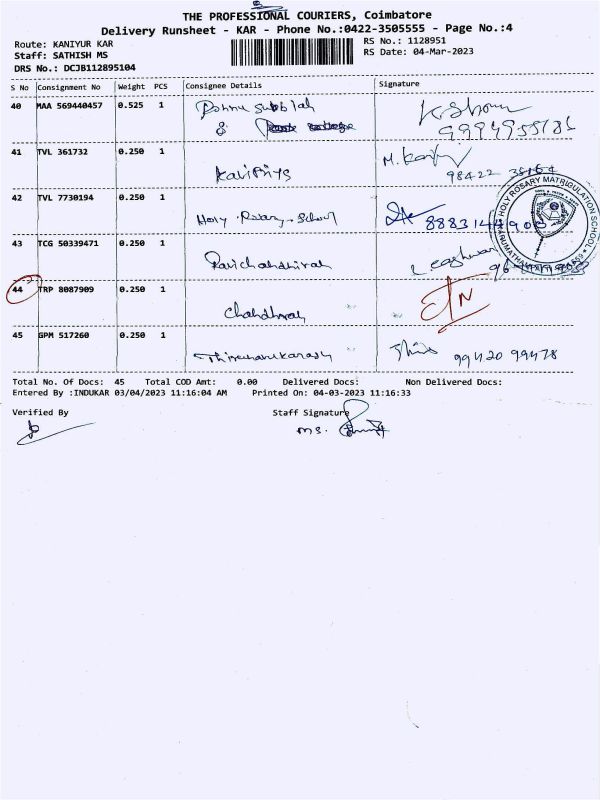 THE PROFESSIONAL COURIERS, Coimbatore
Delivery Runsheet - KAR - Phone No.:0422-3505555 - Page No.:4
Route: KANIYUR KAR
RS No.: 1128951
Staff: SATHISH MS
RS Date: 04-Mar-2023
DRS No.: DCJB112895104
S No Consignment No Weight PCS Consignee Details Signature
40 MAA 569440457 0.525 1
41 TVL 361732 0.250 1 Kavithys
42 TVL 7730194 0.250 1 Holy Rosary School
43 TCG 50339471 0.250 1 Ravichandhiran
44 TRP 8087909 0.250 1
45 GPM 517260 0.250 1 99420 99478
HOLY ROSARY MATRICULATION SCHOOL
Total No. Of Docs: 45 Total COD Amt: 0.00 Delivered Docs: Non Delivered Docs:
Entered By :INDUKAR 03/04/2023 11:16:04 AM Printed On: 04-03-2023 11:16:33
Verified By Staff Signature
MS.